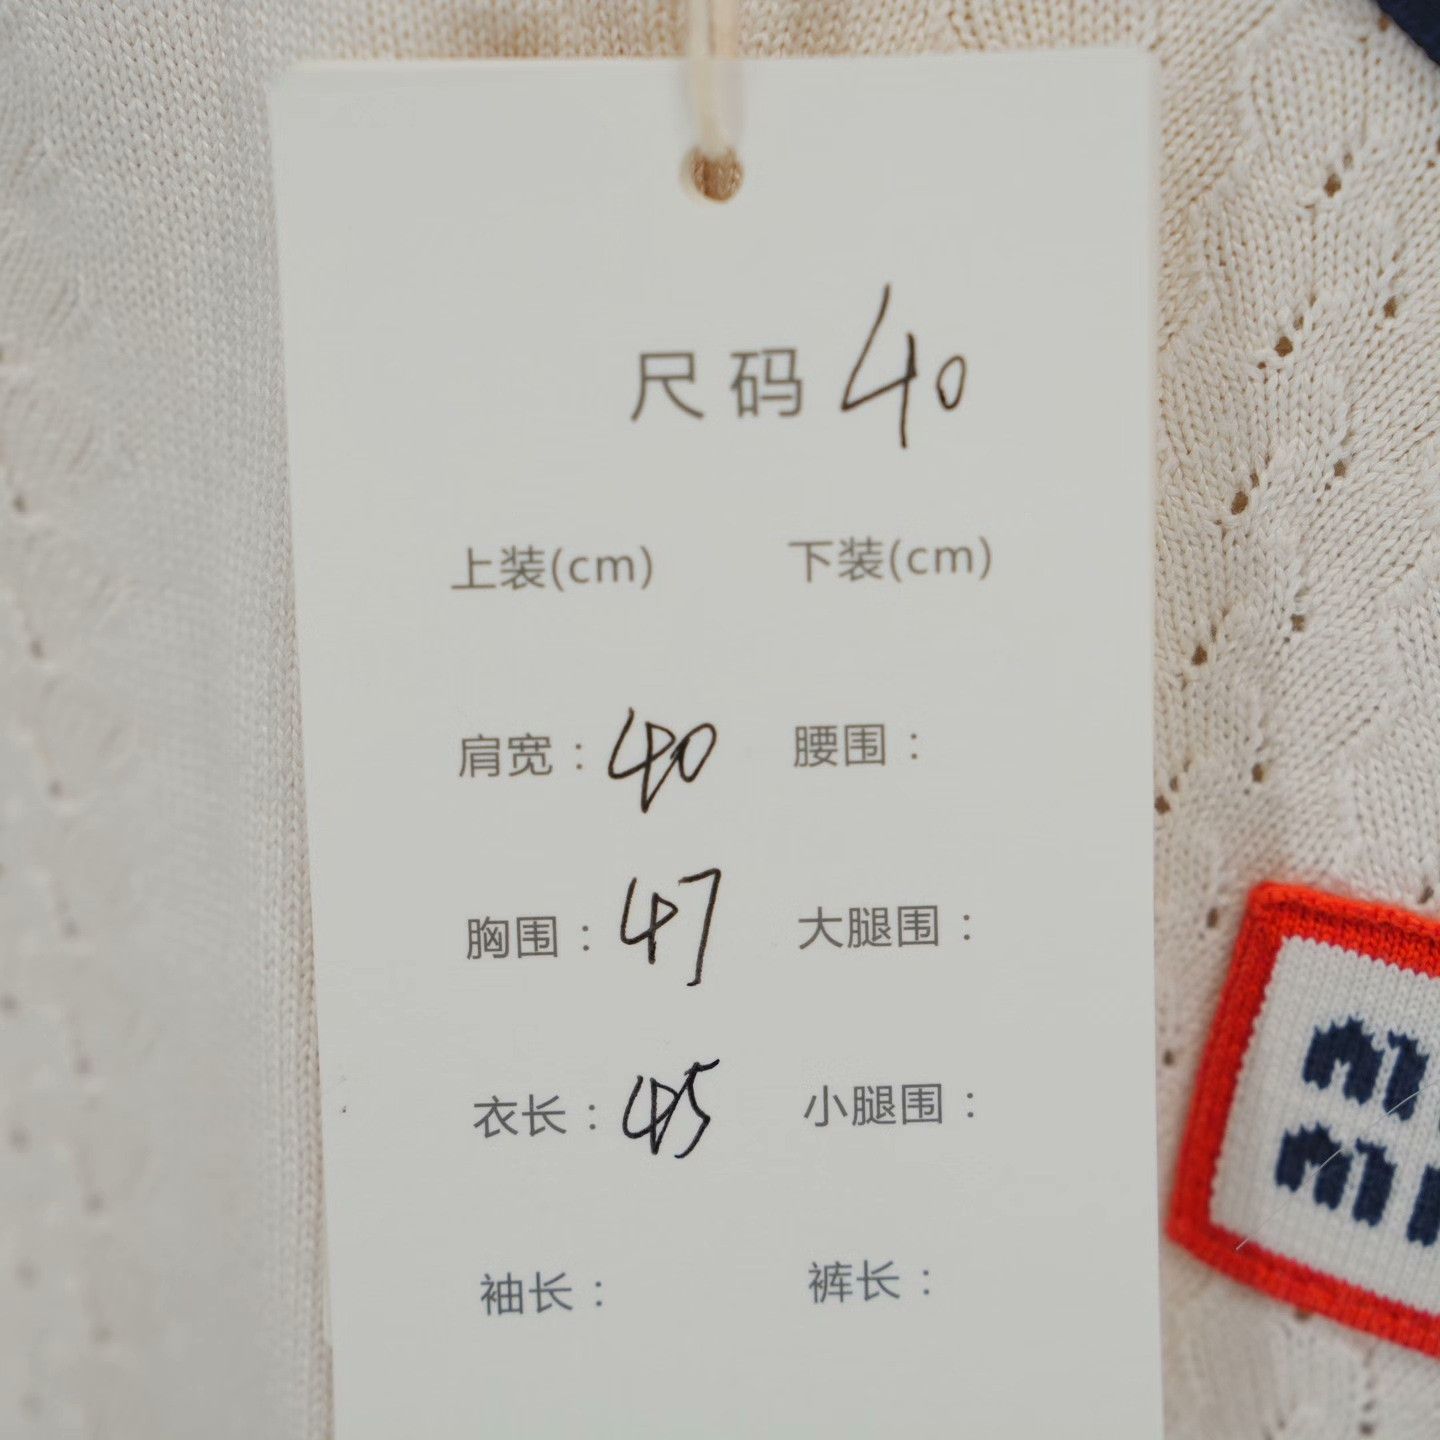 尺码 40
上装(cm) 下装(cm)
肩宽：40 腰围：
胸围：47 大腿围：
衣长：45 小腿围：
袖长： 裤长：